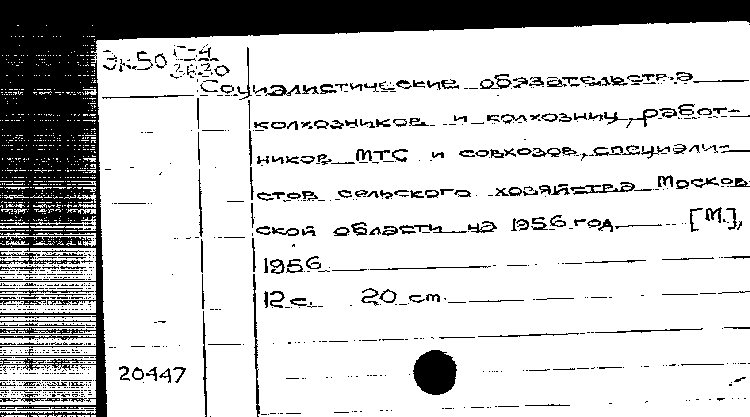 Эк50 Г-4
3630
Социалистические обязательства
колхозников и колхозниц, работ-
ников МТС и совхозов, специали-
стов сельского хозяйства Москов-
ской области на 1956 год. [М.],
1956
12 с. 20 см.
20447